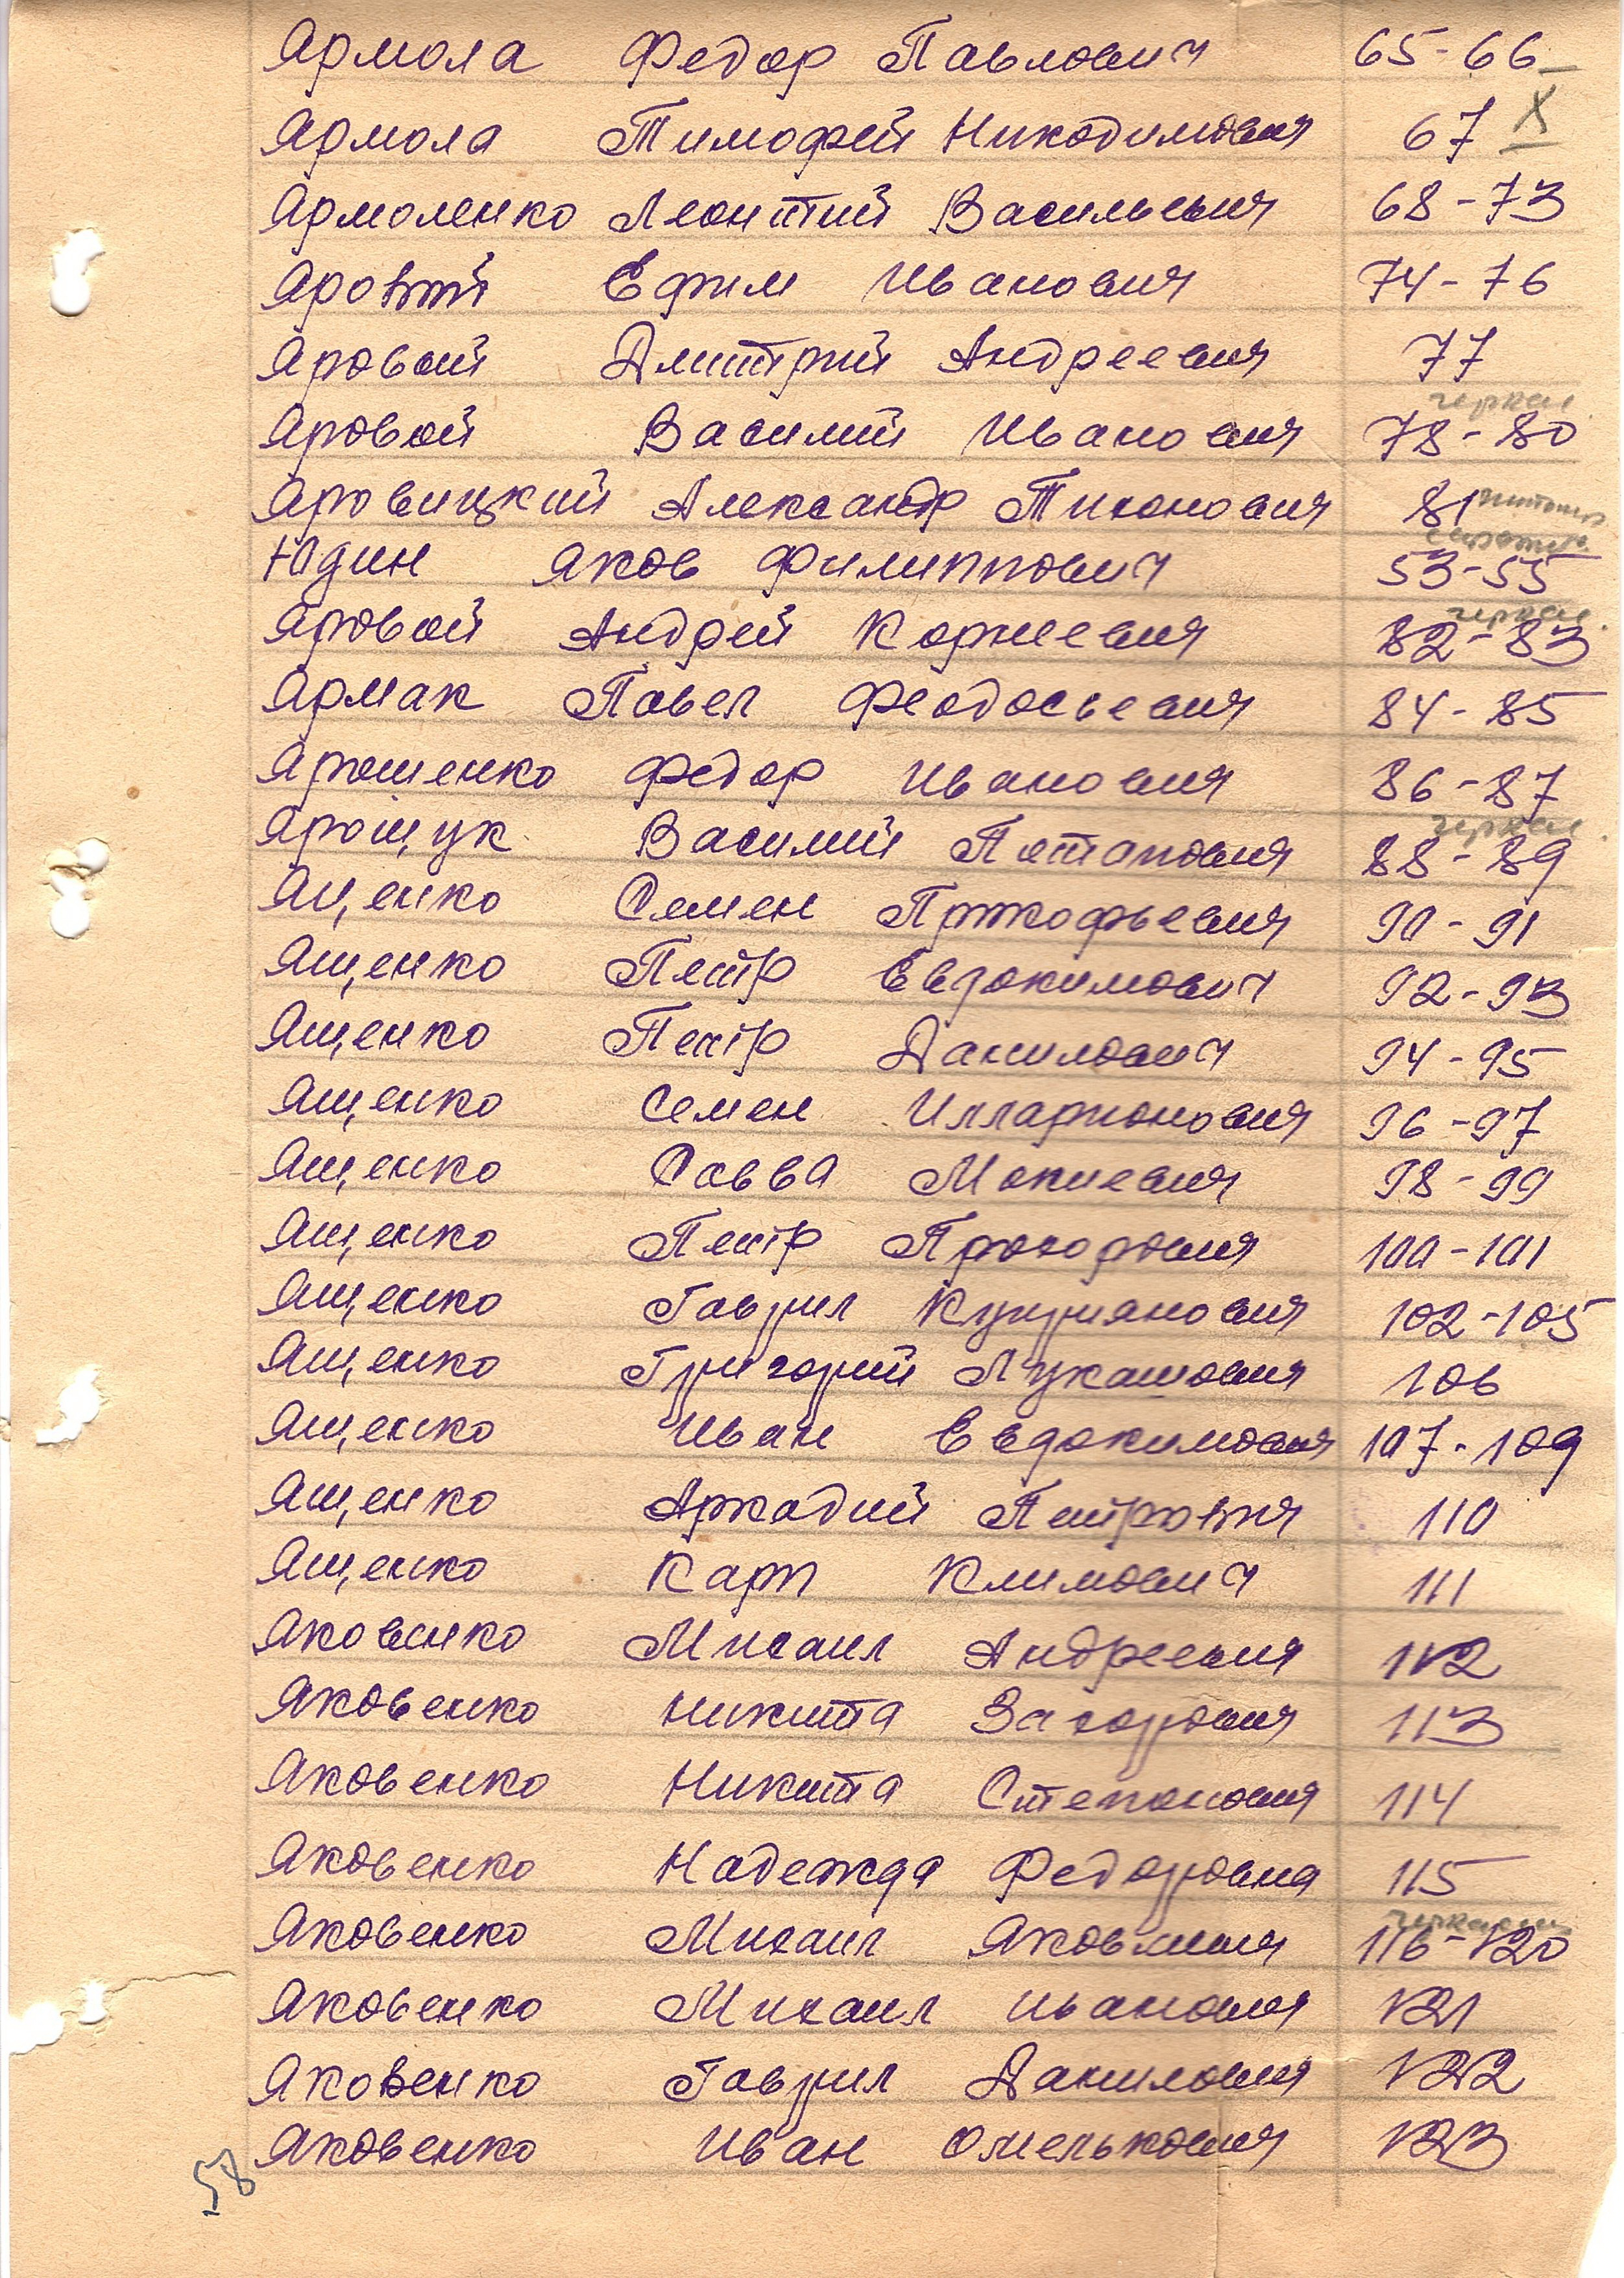 Ярмола Федор Павлович 65-66
Ярмола Тимофей Никодимович 67 X
Ярмоленко Леонтий Васильевич 68-73
Яровой Ефим Иванович 74-76
Яровой Дмитрий Андреевич 77
черкас
Яровой Василий Иванович 78-80
Яровицкий Александр Тихонович 81
Юдин Яков Филиппович 53-55
черкас.
Яровой Андрей Корнеевич 82-83
Ярмак Павел Феодосьевич 84-85
Ярошенко Федор Иванович 86-87
черкас.
Ярощук Василий Потапович 88-89
Яценко Семен Прокофьевич 90-91
Ященко Петр Евдокимович 92-93
Ященко Петр Данилович 94-95
Ященко Семен Илларионович 96-97
Ященко Савва Мокиевич 98-99
Ященко Петр Прохорович 100-101
Ященко Гаврил Куприянович 102-105
Ященко Григорий Лукашович 106
Ященко Иван Евдокимович 107-109
Ященко Аркадий Петрович 110
Ященко Карп Климович 111
Яковенко Михаил Андреевич 112
Яковенко Никита Захорович 113
Яковенко Никита Степанович 114
Яковенко Надежда Федоровна 115
Яковенко Михаил Яковлевич 116-120
Яковенко Михаил Иванович 121
Яковенко Гаврил Данилович 122
Яковенко Иван Омелькович 123
58